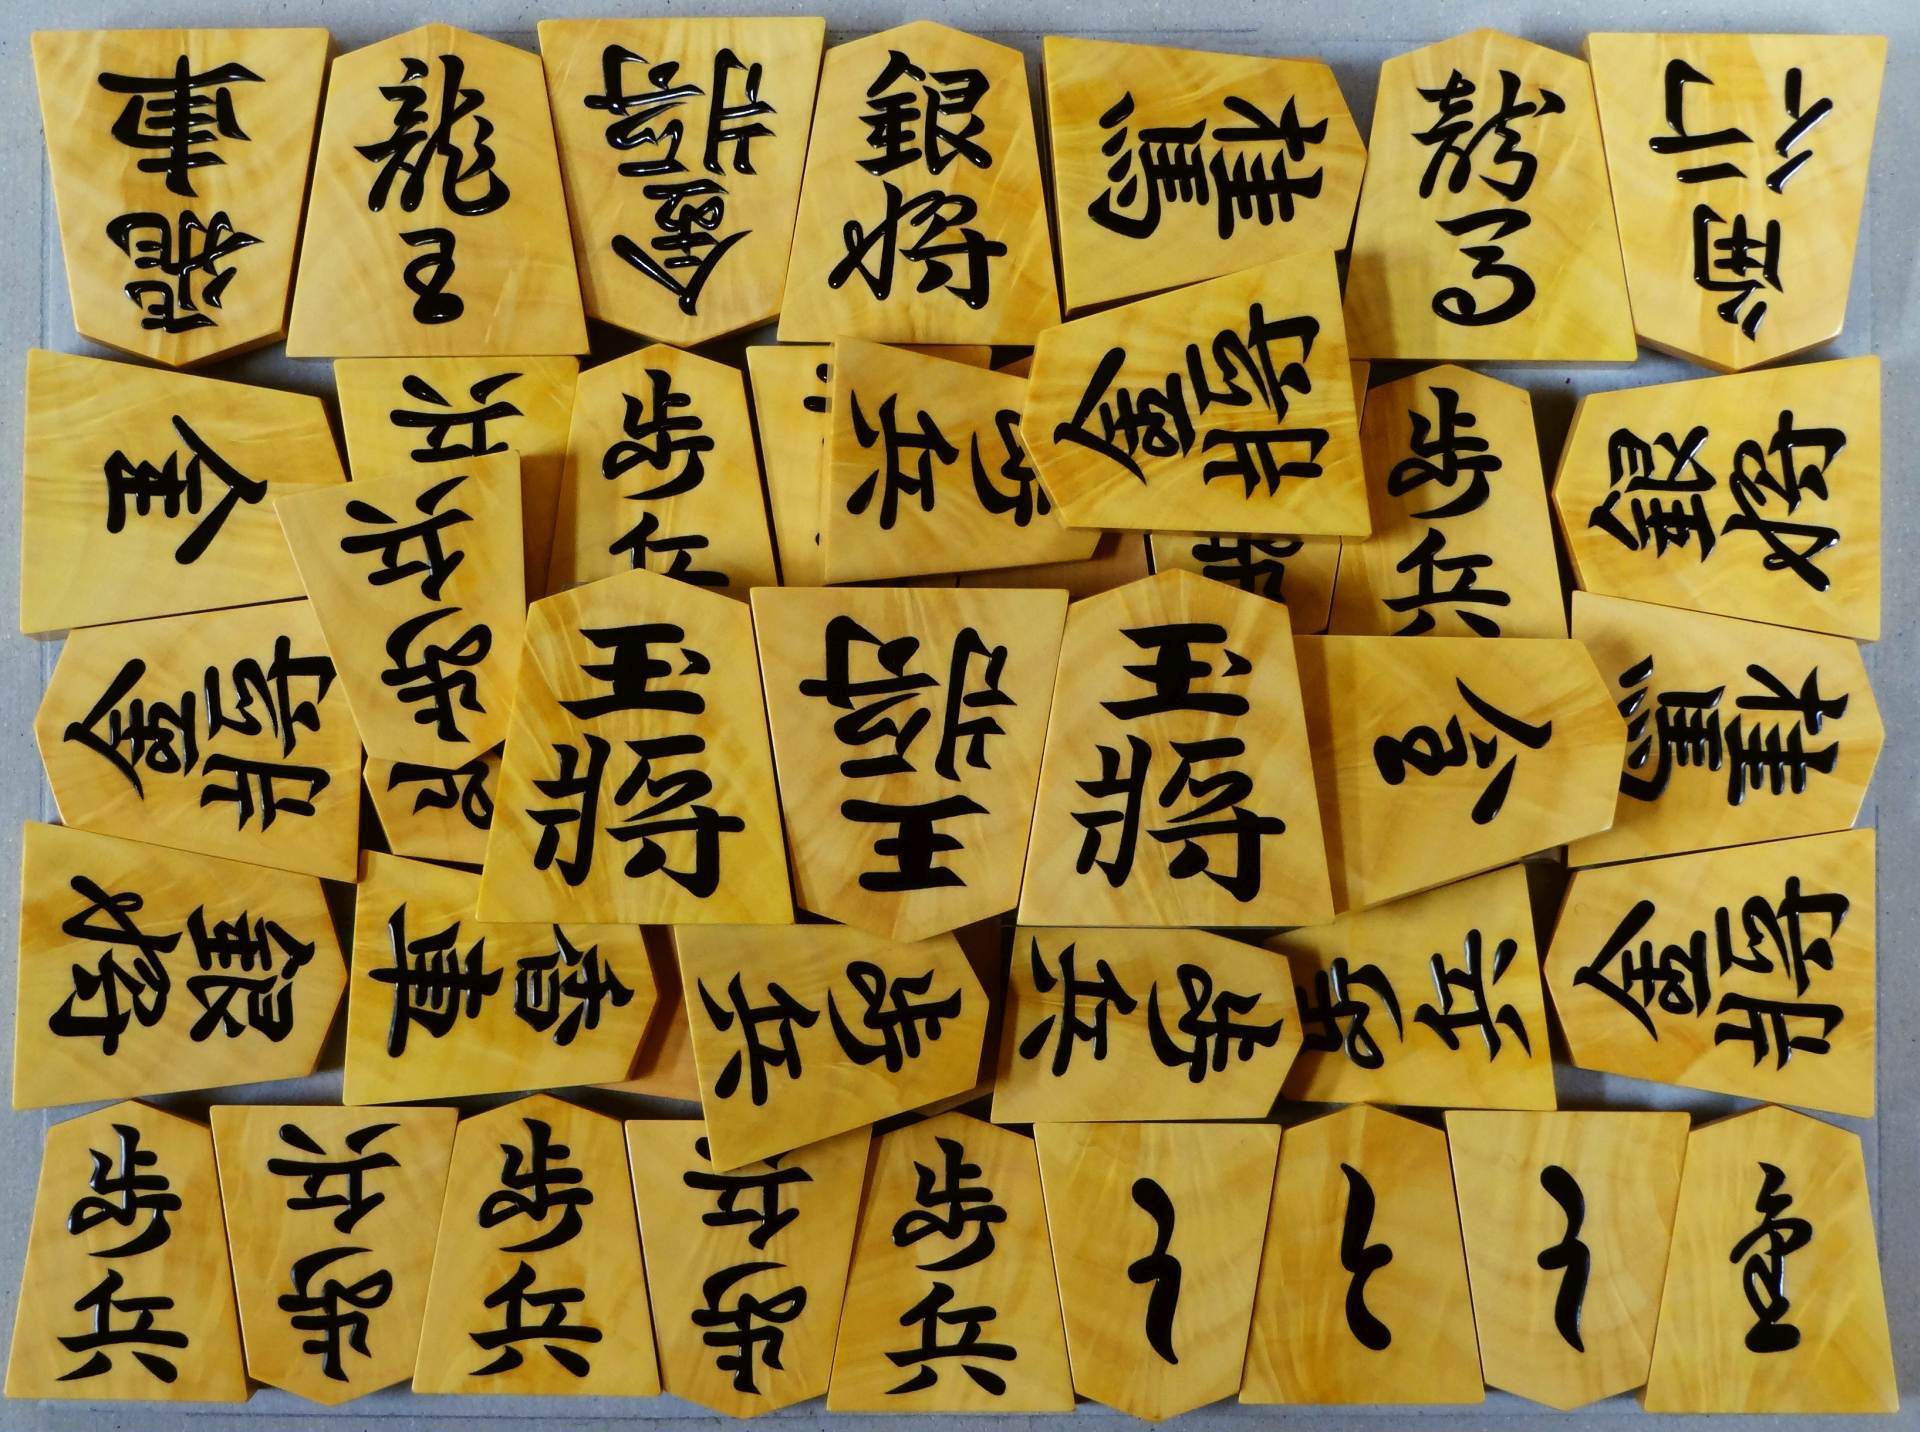 飛車
龍王
金将
銀将
桂馬
龍馬
角行
金
兵
歩兵
歩兵
金将
歩兵
銀将
金将
歩兵
玉将
王将
玉将
桂馬
銀将
香車
歩兵
歩兵
歩兵
金将
歩兵
歩兵
歩兵
歩兵
歩兵
と
と
と